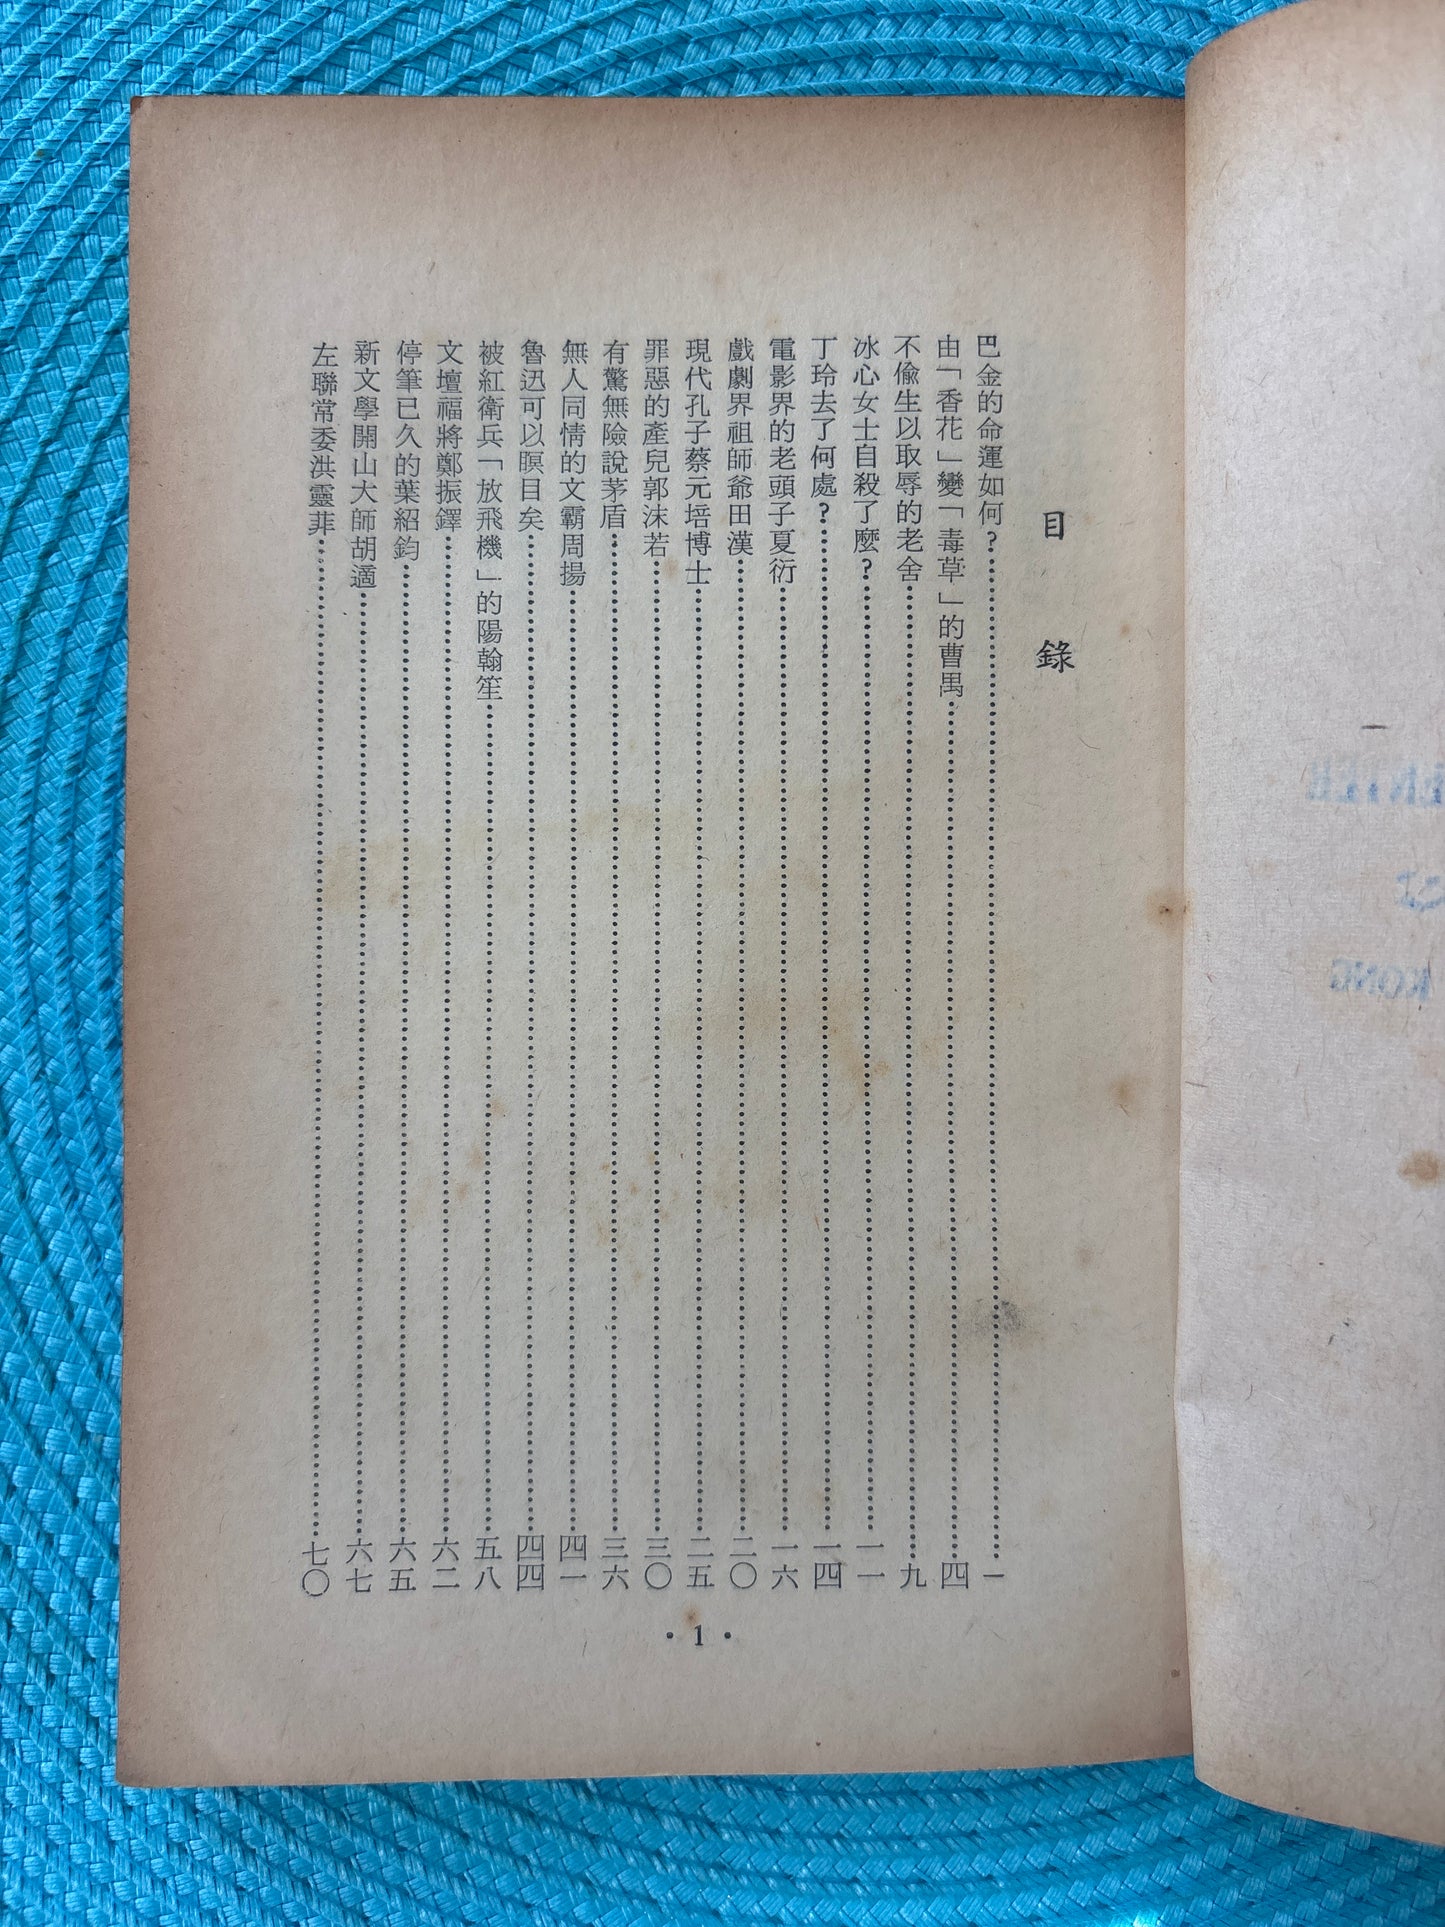 目錄
巴金的命運如何?……一
由「香花」變「毒草」的曹禺……四
不偸生以取辱的老舍……九
冰心女士自殺了麼?……一一
丁玲去了何處?……一四
電影界的老頭子夏衍……一六
戲劇界祖師爺田漢……二〇
現代孔子蔡元培博士……二五
罪惡的產兒郭沫若……三〇
有驚無險說茅盾……三六
無人同情的文霸周揚……四一
魯迅可以瞑目矣……四四
被紅衛兵「放飛機」的陽翰笙……五八
文壇福將鄭振鐸……六二
停筆已久的葉紹鈞……六五
新文學開山大師胡適……六七
左聯常委洪靈菲……七〇
• 1 •
KONG